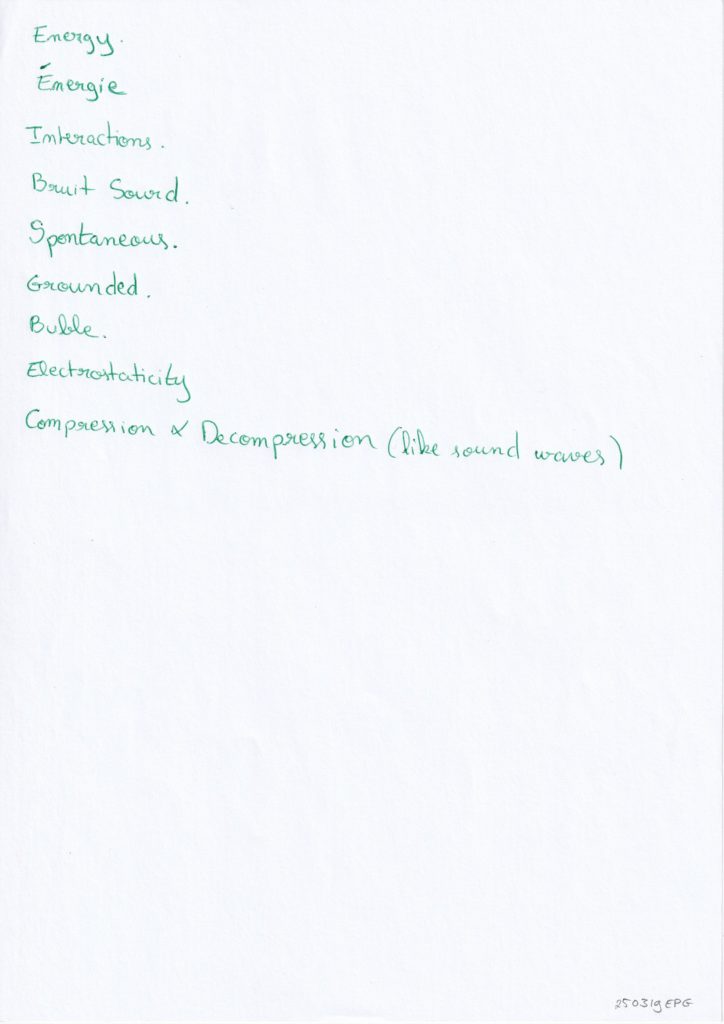 Energy.
Énergie
Interactions.
Bruit Sourd.
Spontaneous.
Grounded.
Buble.
Electrostaticity
Compression & Decompression (like sound waves)
250319EPG